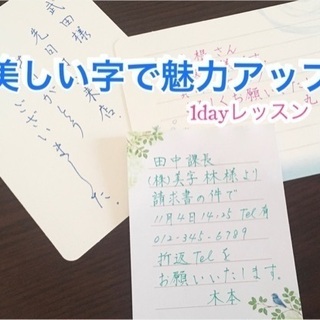 美しい字で魅力アップ
1dayレッスン
武田様
先日
来店
ありがとう
ございました。
様さん
お願いいた
田中課長
(株)美字林様より
請求書の件で
11月4日14:25 Tel有
012-345-6789
折返Telを
お願いいたします。
木本